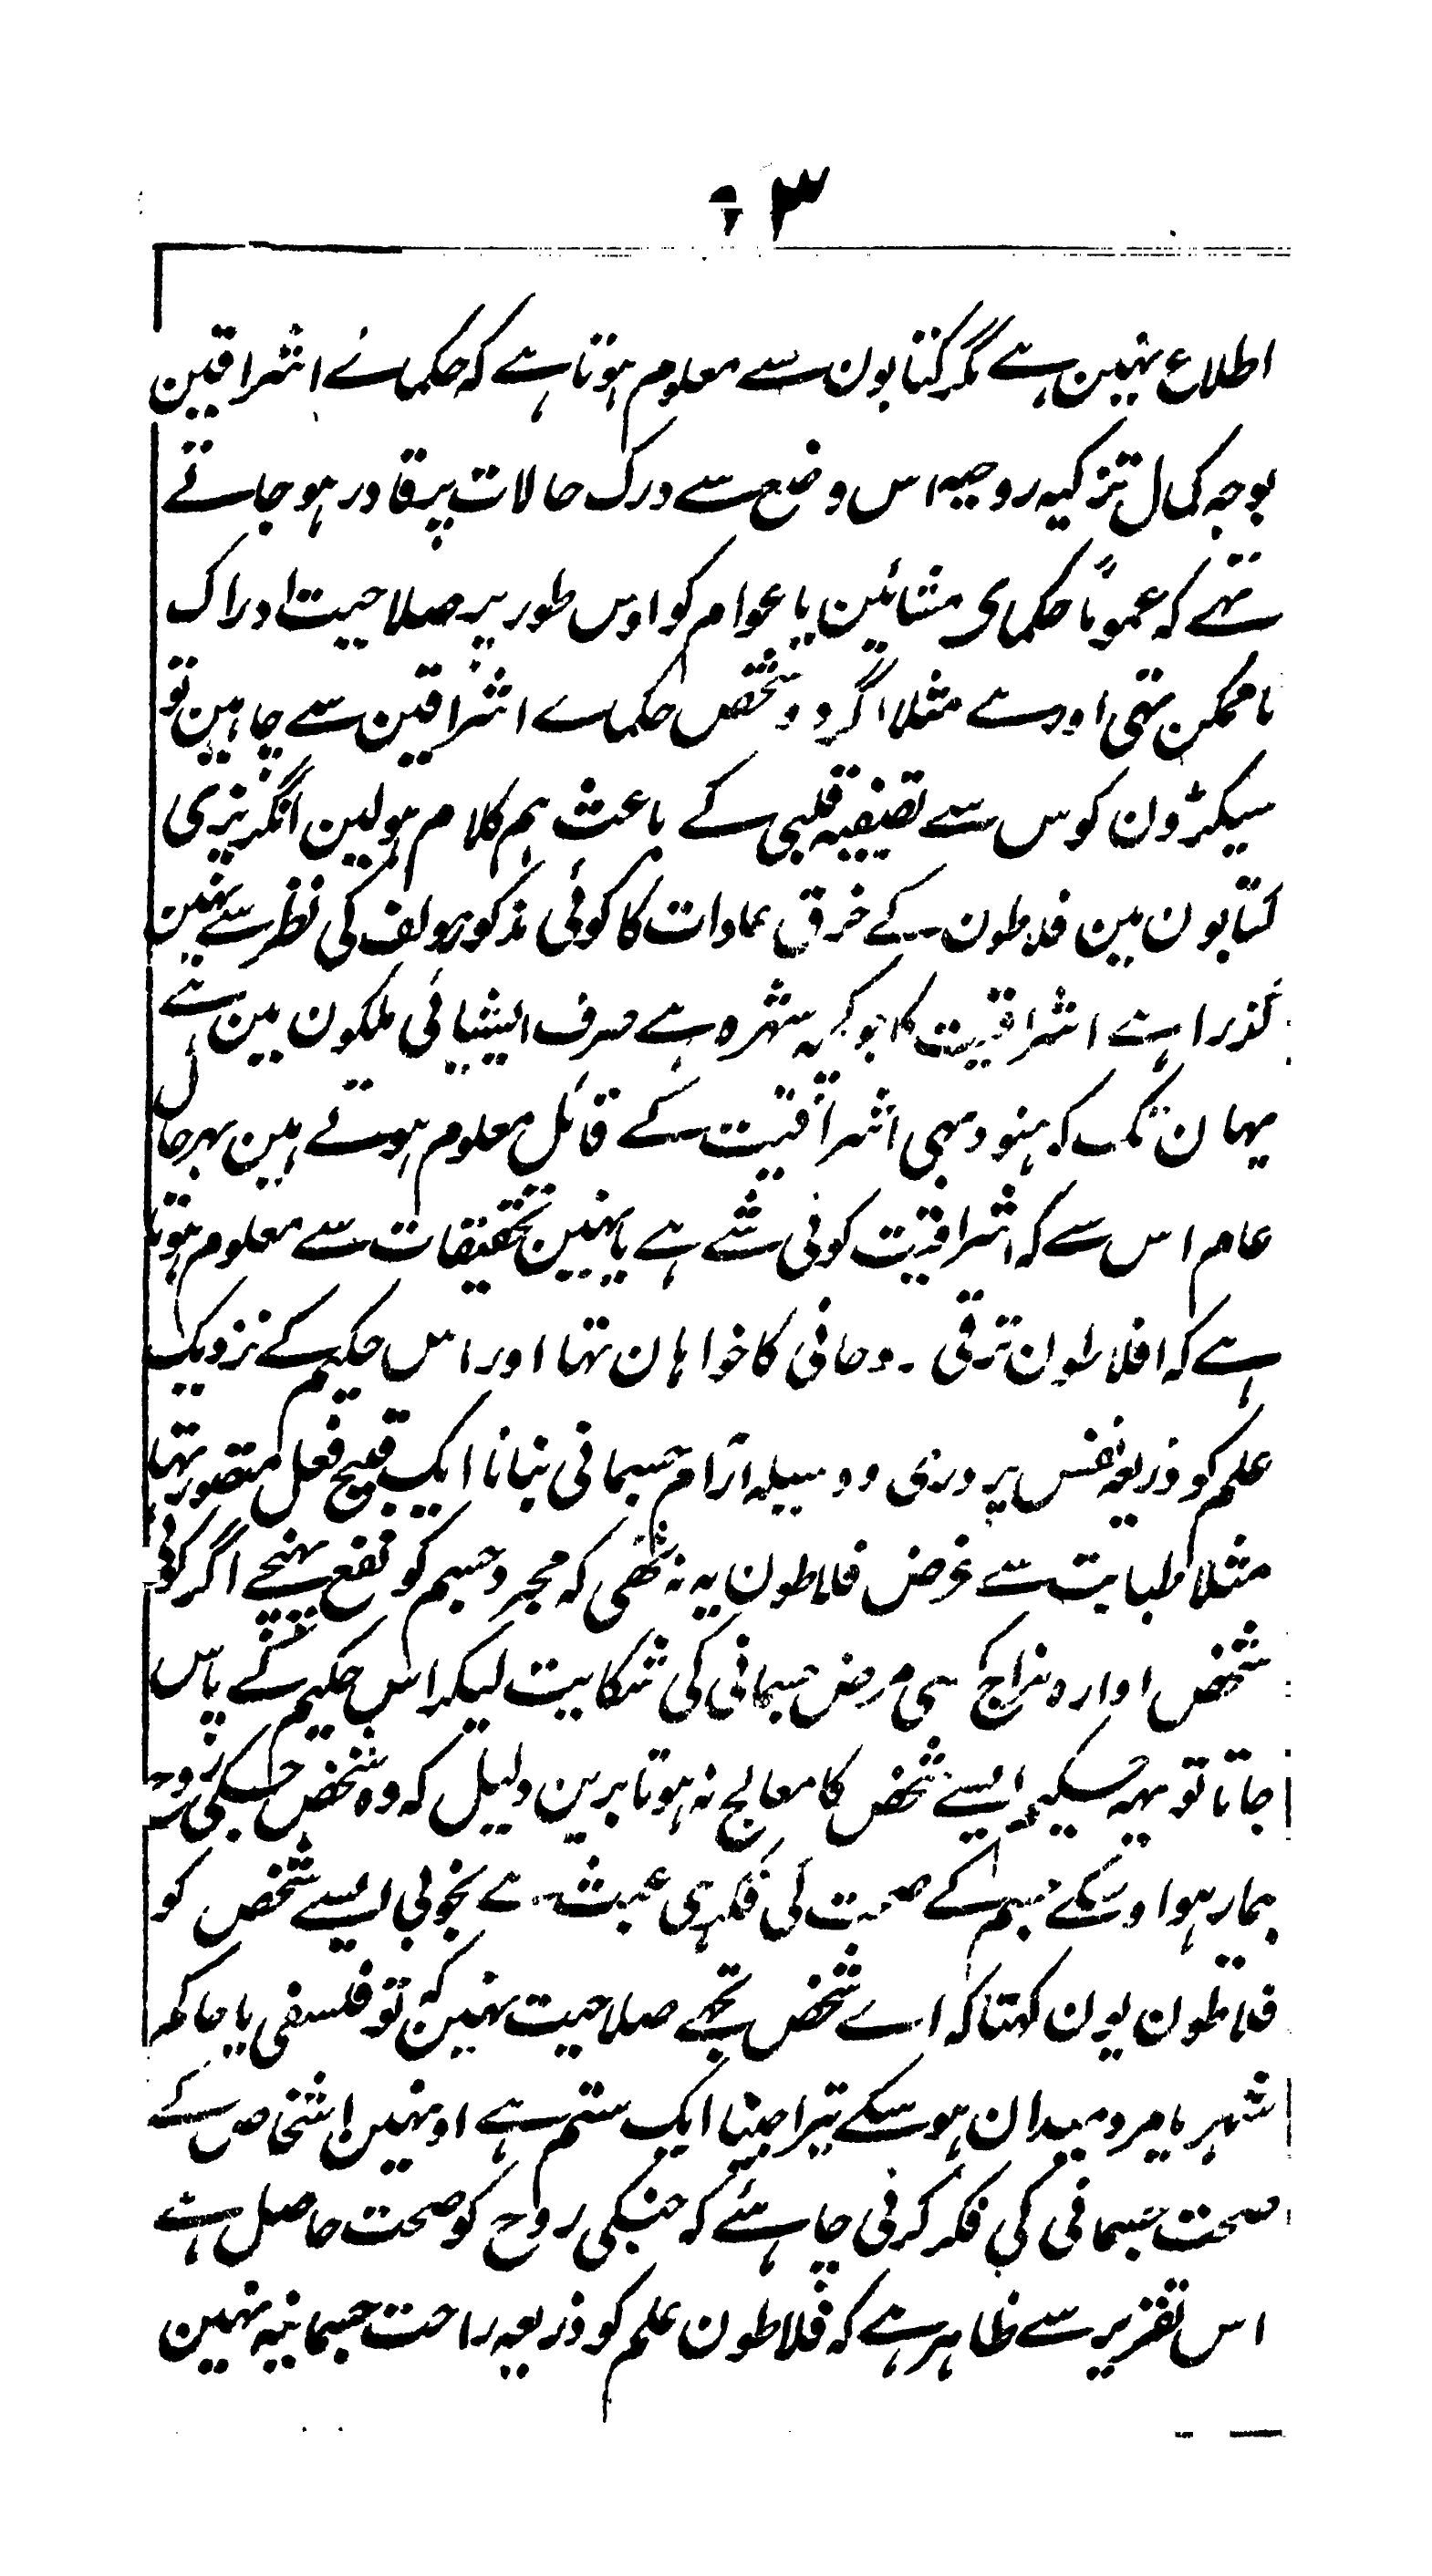 ۳
اطلاع نہین ہے مگر کتابون سے معلوم ہوتا ہے کہ حکمائے اشراقین
بوجہ کمال تزکیہ روحیہ اس وضع سے درک حالات پر قادر ہو جاتے
تہے کہ عموماً حکمای مشائین یا عوام کو اوس طور پر صلاحیت ادراک
ناممکن تہی اورہے مثلا اگر دو شخص حکماے اشراقین سے چاہین تو
سیکڑون کوس سے تصفیہ قلبی کے باعث ہم کلام ہولین انگریزی
کتابون مین فلاطون کے خرق عادات کا کوئی مذکور مولف کی نظر سے نہین
گذرا ہے اشراقیت کا جو کچہ شہرہ ہے صرف ایشیائی ملکون مین ہے
یہان تک کہ ہنود بھی اشراقیت کے قائل معلوم ہوتے ہین بہرحال
عام اس سے کہ اشراقیت کوئی شے ہے یا نہین تحقیقات سے معلوم ہوتا
ہے کہ افلاطون ترقی روحانی کا خواہان تہا اور اس حکیم کے نزدیک
علم کو ذریعہ نفس پروری و وسیلہ آرام جسمانی بنانا ایک قبیح فعل متصور تہا
مثلا طبابت سے غرض فلاطون یہ نہ تھی کہ مجرد جسم کو نفع پہنچے اگر کوئی
شخص اوارہ مزاج کسی مرض جسمانی کی شکایت لیکر اس حکیم کے پاس
جاتا تو یہہ حکیم ایسے شخص کا معالج نہ ہوتا برین دلیل کہ وہ شخص جسکی روح
بیمار ہو اوسکے جسم کے صحت کی فکر ہی عبث ہے بخوبی ایسے شخص کو
فلاطون یون کہتا کہ اے شخص تجھے صلاحیت نہین کہ تو فلسفی یا حاکم
شہر یا مرد میدان ہو سکے تیرا جینا ایک ستم ہے اونہین اشخاص کے
صحت جسمانی کی فکر کرنی چاہئے کہ جنکی روح کو صحت حاصل ہے
اس تقریر سے ظاہر ہے کہ فلاطون علم کو ذریعہ راحت جسمانیہ نہین